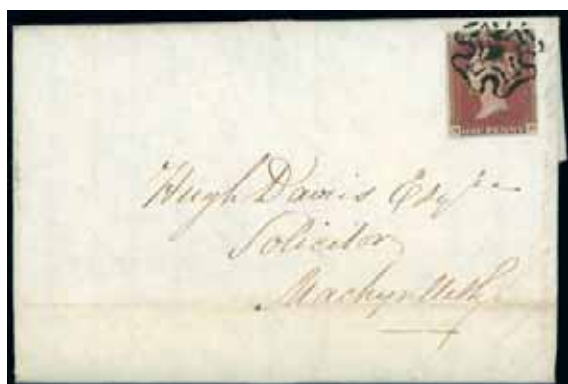 ONE PENNY
Hugh Davis Esqre
Solicitor
Machynlleth